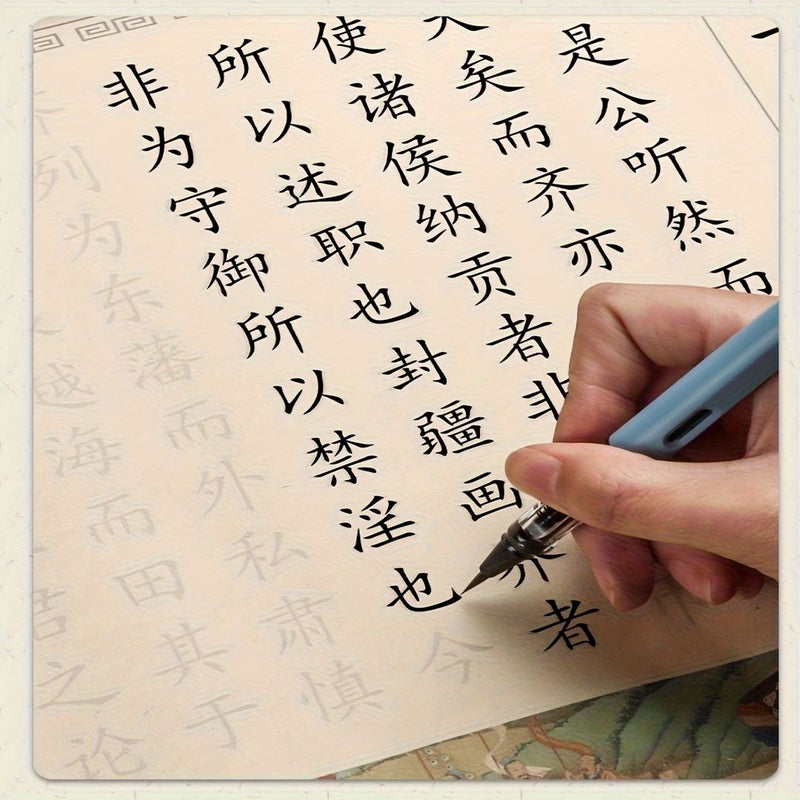 是公听然而
矣而齐亦
使诸侯纳贡者非
所以述职也封疆画界者
非为守御所以禁淫也今
列为东藩而外私肃慎
越海而田其于
之论